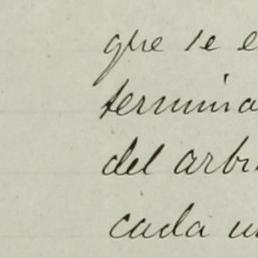 que se e
termina
del arbi
cada u